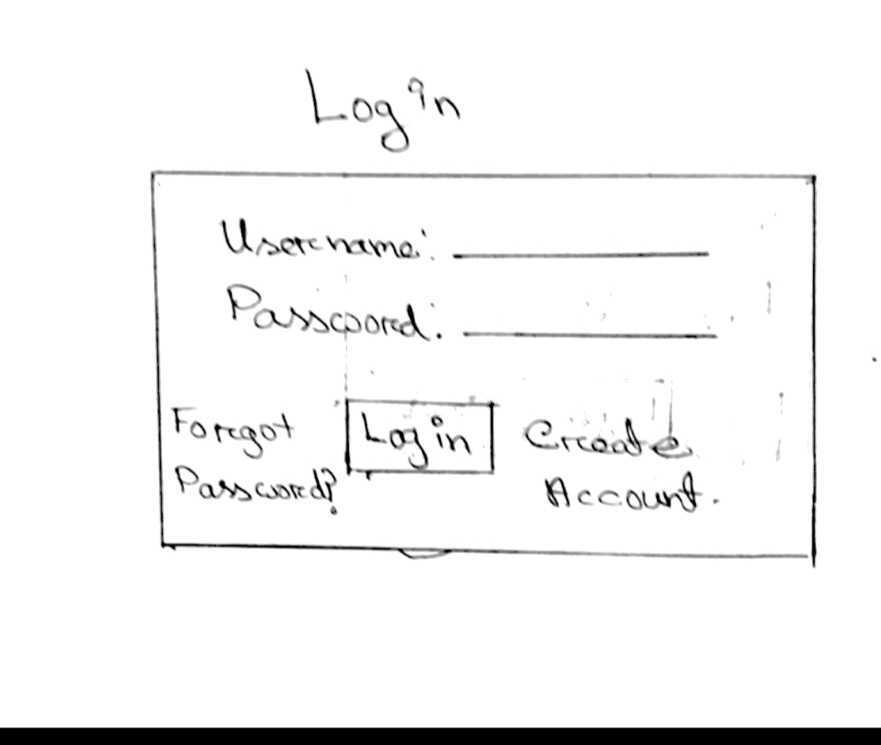 Login
Username:
Password:
Forgot
Password?
Login
Create
Account.